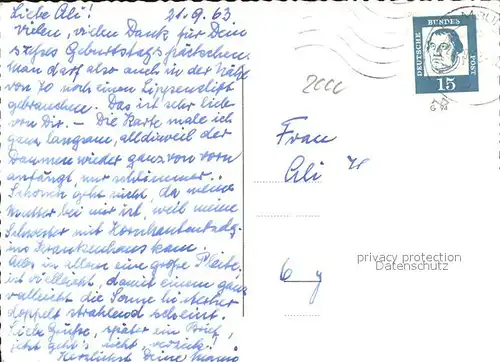 Liebe Ali! 21.9.63.
Vielen, vielen Dank für Dein
süßes Geburtstagspäckchen.
Man darf also auch in der Nähe
von 70 noch einen Lippenstift
gebrauchen. Das ist sehr lieb
von Dir. - Die Karte male ich
ganz langsam, alldieweil der
Daumen wieder ganz von vorn
anfängt, nur schlimmer..
Schonen geht nicht, da meine
Mutter bei mir ist, weil meine
Schwester mit Hornhautentzdg.
ins Krankenhaus kam.
Alles in allem eine große Pleite.
ist vielleicht, damit einem ganz
vielleicht die Sonne hinterher
doppelt strahlend scheint.
Liebe Grüße, später ein Brief,
jetzt geht's nicht,
Herzlichst Deine
2000
DEUTSCHE BUNDES POST
15
Frau
Ali
privacy protection
Datenschutz